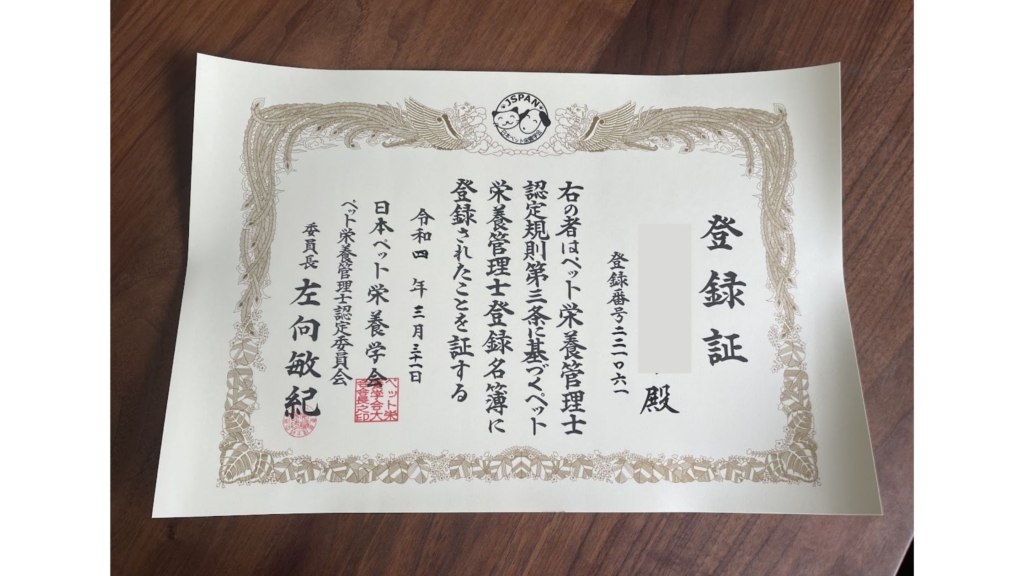 JSPAN
日本ペット栄養学会
登録証
殿
登録番号二二一〇六一
右の者はペット栄養管理士
認定規則第三条に基づくペット
栄養管理士登録名簿に
登録されたことを証する
令和四年三月三十一日
日本ペット栄養学会
ペット栄養管理士認定委員会
委員長 左向敏紀